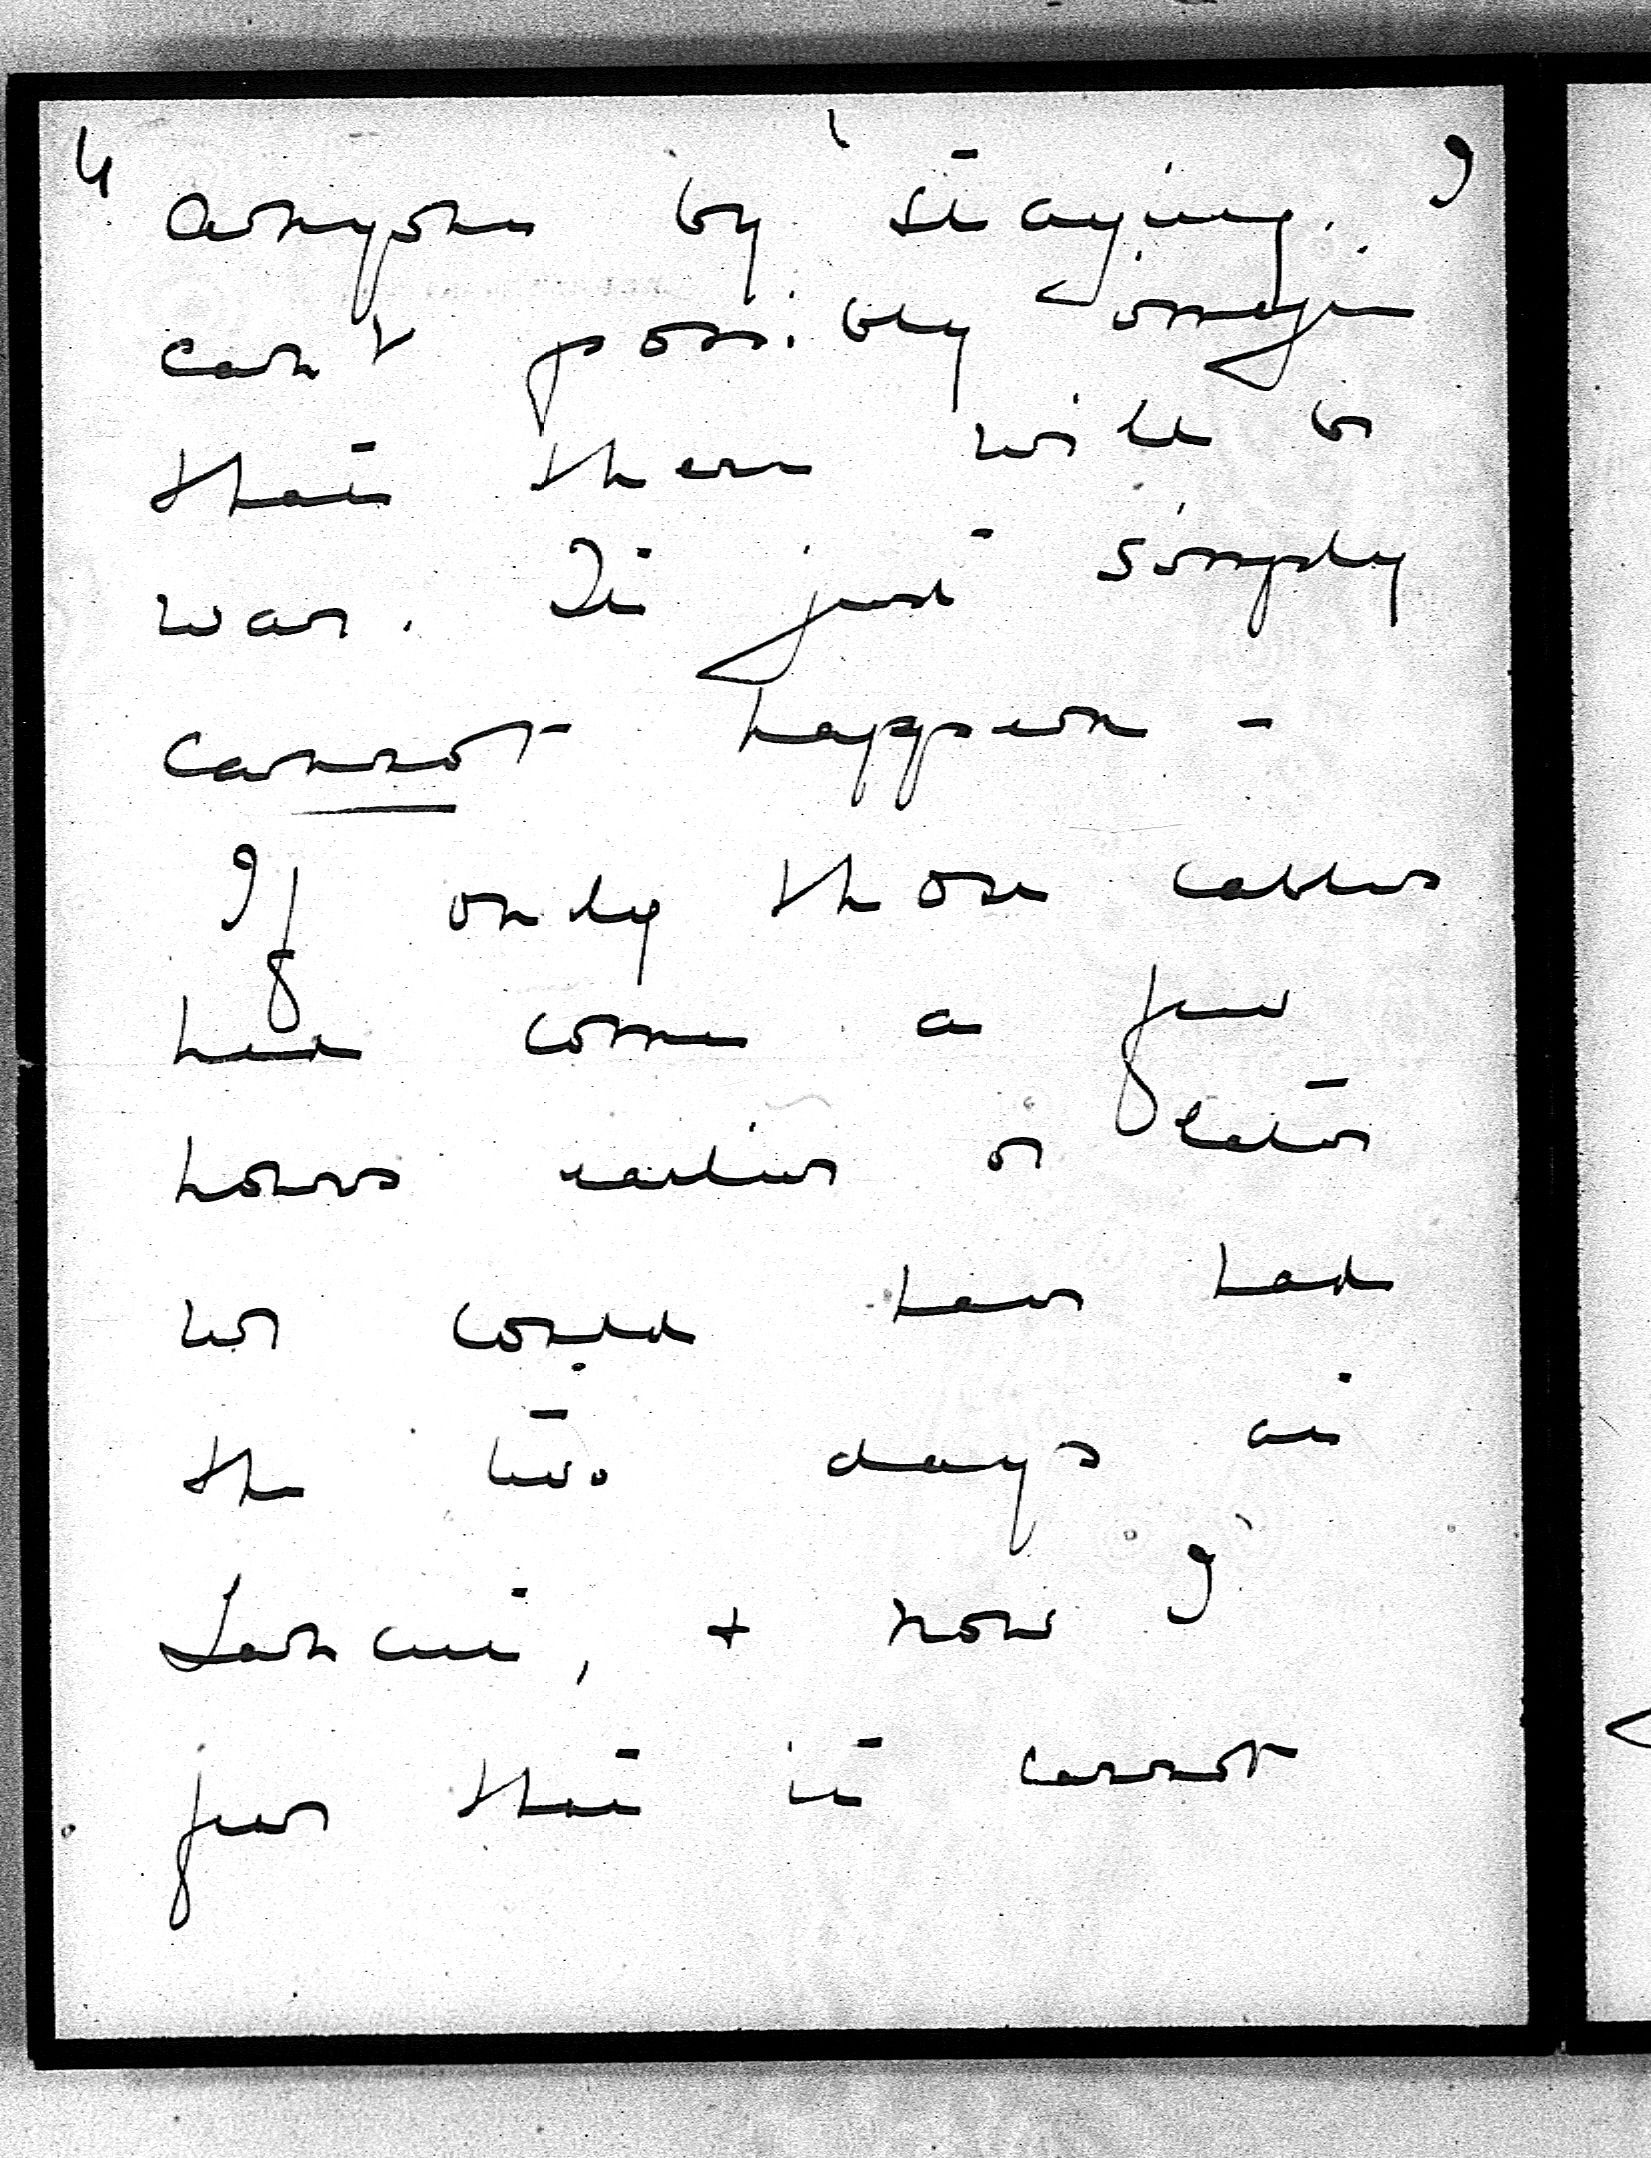 4
anyone by staying. I
can't possibly imagine
that there will be
war. It just simply
cannot happen -
If only those cables
had come a few
hours earlier or later
we could have had
the two days at
, & now I
fear that it cannot